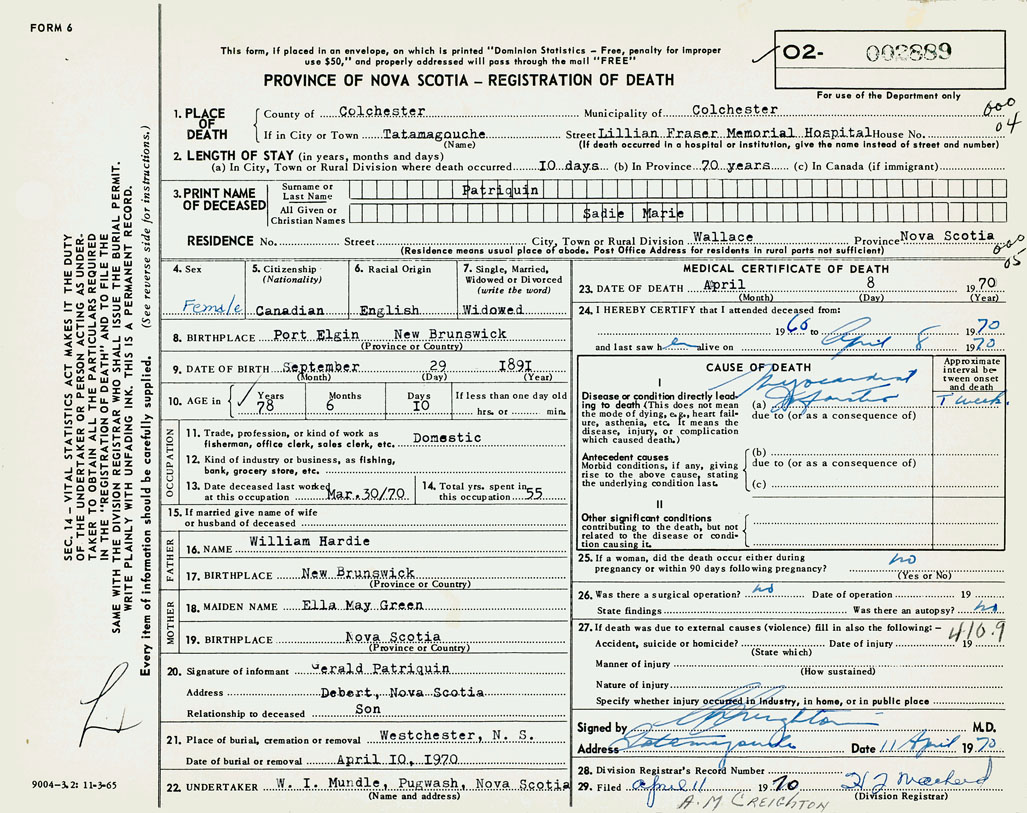 FORM 6
This form, if placed in an envelope, on which is printed "Dominion Statistics – Free, penalty for improper
use $50," and properly addressed will pass through the mail "FREE"
PROVINCE OF NOVA SCOTIA – REGISTRATION OF DEATH
O2- 002889
For use of the Department only
SEC. 14 – VITAL STATISTICS ACT MAKES IT THE DUTY
OF THE UNDERTAKER OR PERSON ACTING AS UNDER-
TAKER TO OBTAIN ALL THE PARTICULARS REQUIRED
IN THE "REGISTRATION OF DEATH" AND TO FILE THE
SAME WITH THE DIVISION REGISTRAR WHO SHALL ISSUE THE BURIAL PERMIT.
WRITE PLAINLY WITH UNFADING INK. THIS IS A PERMANENT RECORD.
Every item of information should be carefully supplied. (See reverse side for instructions.)
1. PLACE OF DEATH
County of Colchester Municipality of Colchester
000
04
If in City or Town Tatamagouche Street Lillian Fraser Memorial Hospital House No.
(Name) (If death occurred in a hospital or institution, give the name instead of street and number)
2. LENGTH OF STAY (in years, months and days)
(a) In City, Town or Rural Division where death occurred 10 days (b) In Province 70 years (c) In Canada (if immigrant)
3. PRINT NAME OF DECEASED
Surname or Last Name Patriquin
All Given or Christian Names Sadie Marie
RESIDENCE No. Street City, Town or Rural Division Wallace Province Nova Scotia
(Residence means usual place of abode. Post Office Address for residents in rural parts not sufficient)
000
05
4. Sex Female
5. Citizenship (Nationality) Canadian
6. Racial Origin English
7. Single, Married, Widowed or Divorced (write the word) Widowed
8. BIRTHPLACE Port Elgin New Brunswick
(Province or Country)
9. DATE OF BIRTH September 29 1891
(Month) (Day) (Year)
10. AGE in Years 78 Months 6 Days 10 If less than one day old hrs. or min.
OCCUPATION
11. Trade, profession, or kind of work as fisherman, office clerk, sales clerk, etc. Domestic
12. Kind of industry or business, as fishing, bank, grocery store, etc.
13. Date deceased last worked at this occupation Mar. 30/70
14. Total yrs. spent in this occupation 55
15. If married give name of wife or husband of deceased
FATHER
16. NAME William Hardie
17. BIRTHPLACE New Brunswick
(Province or Country)
MOTHER
18. MAIDEN NAME Ella May Green
19. BIRTHPLACE Nova Scotia
(Province or Country)
20. Signature of informant Gerald Patriquin
Address Debert, Nova Scotia
Relationship to deceased Son
21. Place of burial, cremation or removal Westchester, N. S.
Date of burial or removal April 10, 1970
22. UNDERTAKER W. I. Mundle, Pugwash, Nova Scotia
(Name and address)
9004-3.2: 11-3-65
MEDICAL CERTIFICATE OF DEATH
23. DATE OF DEATH April 8 19 70
(Month) (Day) (Year)
24. I HEREBY CERTIFY that I attended deceased from:
19 66 to April 8 19 70
and last saw h er alive on 19 70
CAUSE OF DEATH
Approximate interval between onset and death
I
Disease or condition directly leading to death (This does not mean the mode of dying, e.g., heart failure, asthenia, etc. It means the disease, injury, or complication which caused death.)
(a) Myocardial Infarction 1 week.
due to (or as a consequence of)
Antecedent causes
Morbid conditions, if any, giving rise to the above cause, stating the underlying condition last.
(b)
due to (or as a consequence of)
(c)
II
Other significant conditions
contributing to the death, but not related to the disease or condition causing it.
25. If a woman, did the death occur either during pregnancy or within 90 days following pregnancy? no
(Yes or No)
26. Was there a surgical operation? no Date of operation 19
State findings Was there an autopsy? no
27. If death was due to external causes (violence) fill in also the following: –
410.9
Accident, suicide or homicide? Date of injury 19
(State which)
Manner of injury
(How sustained)
Nature of injury
Specify whether injury occurred in industry, in home, or in public place
Signed by Creighton M.D.
Address Tatamagouche Date 11 April 1970
28. Division Registrar's Record Number
29. Filed April 11 1970
(Division Registrar)
A. M CREIGHTON